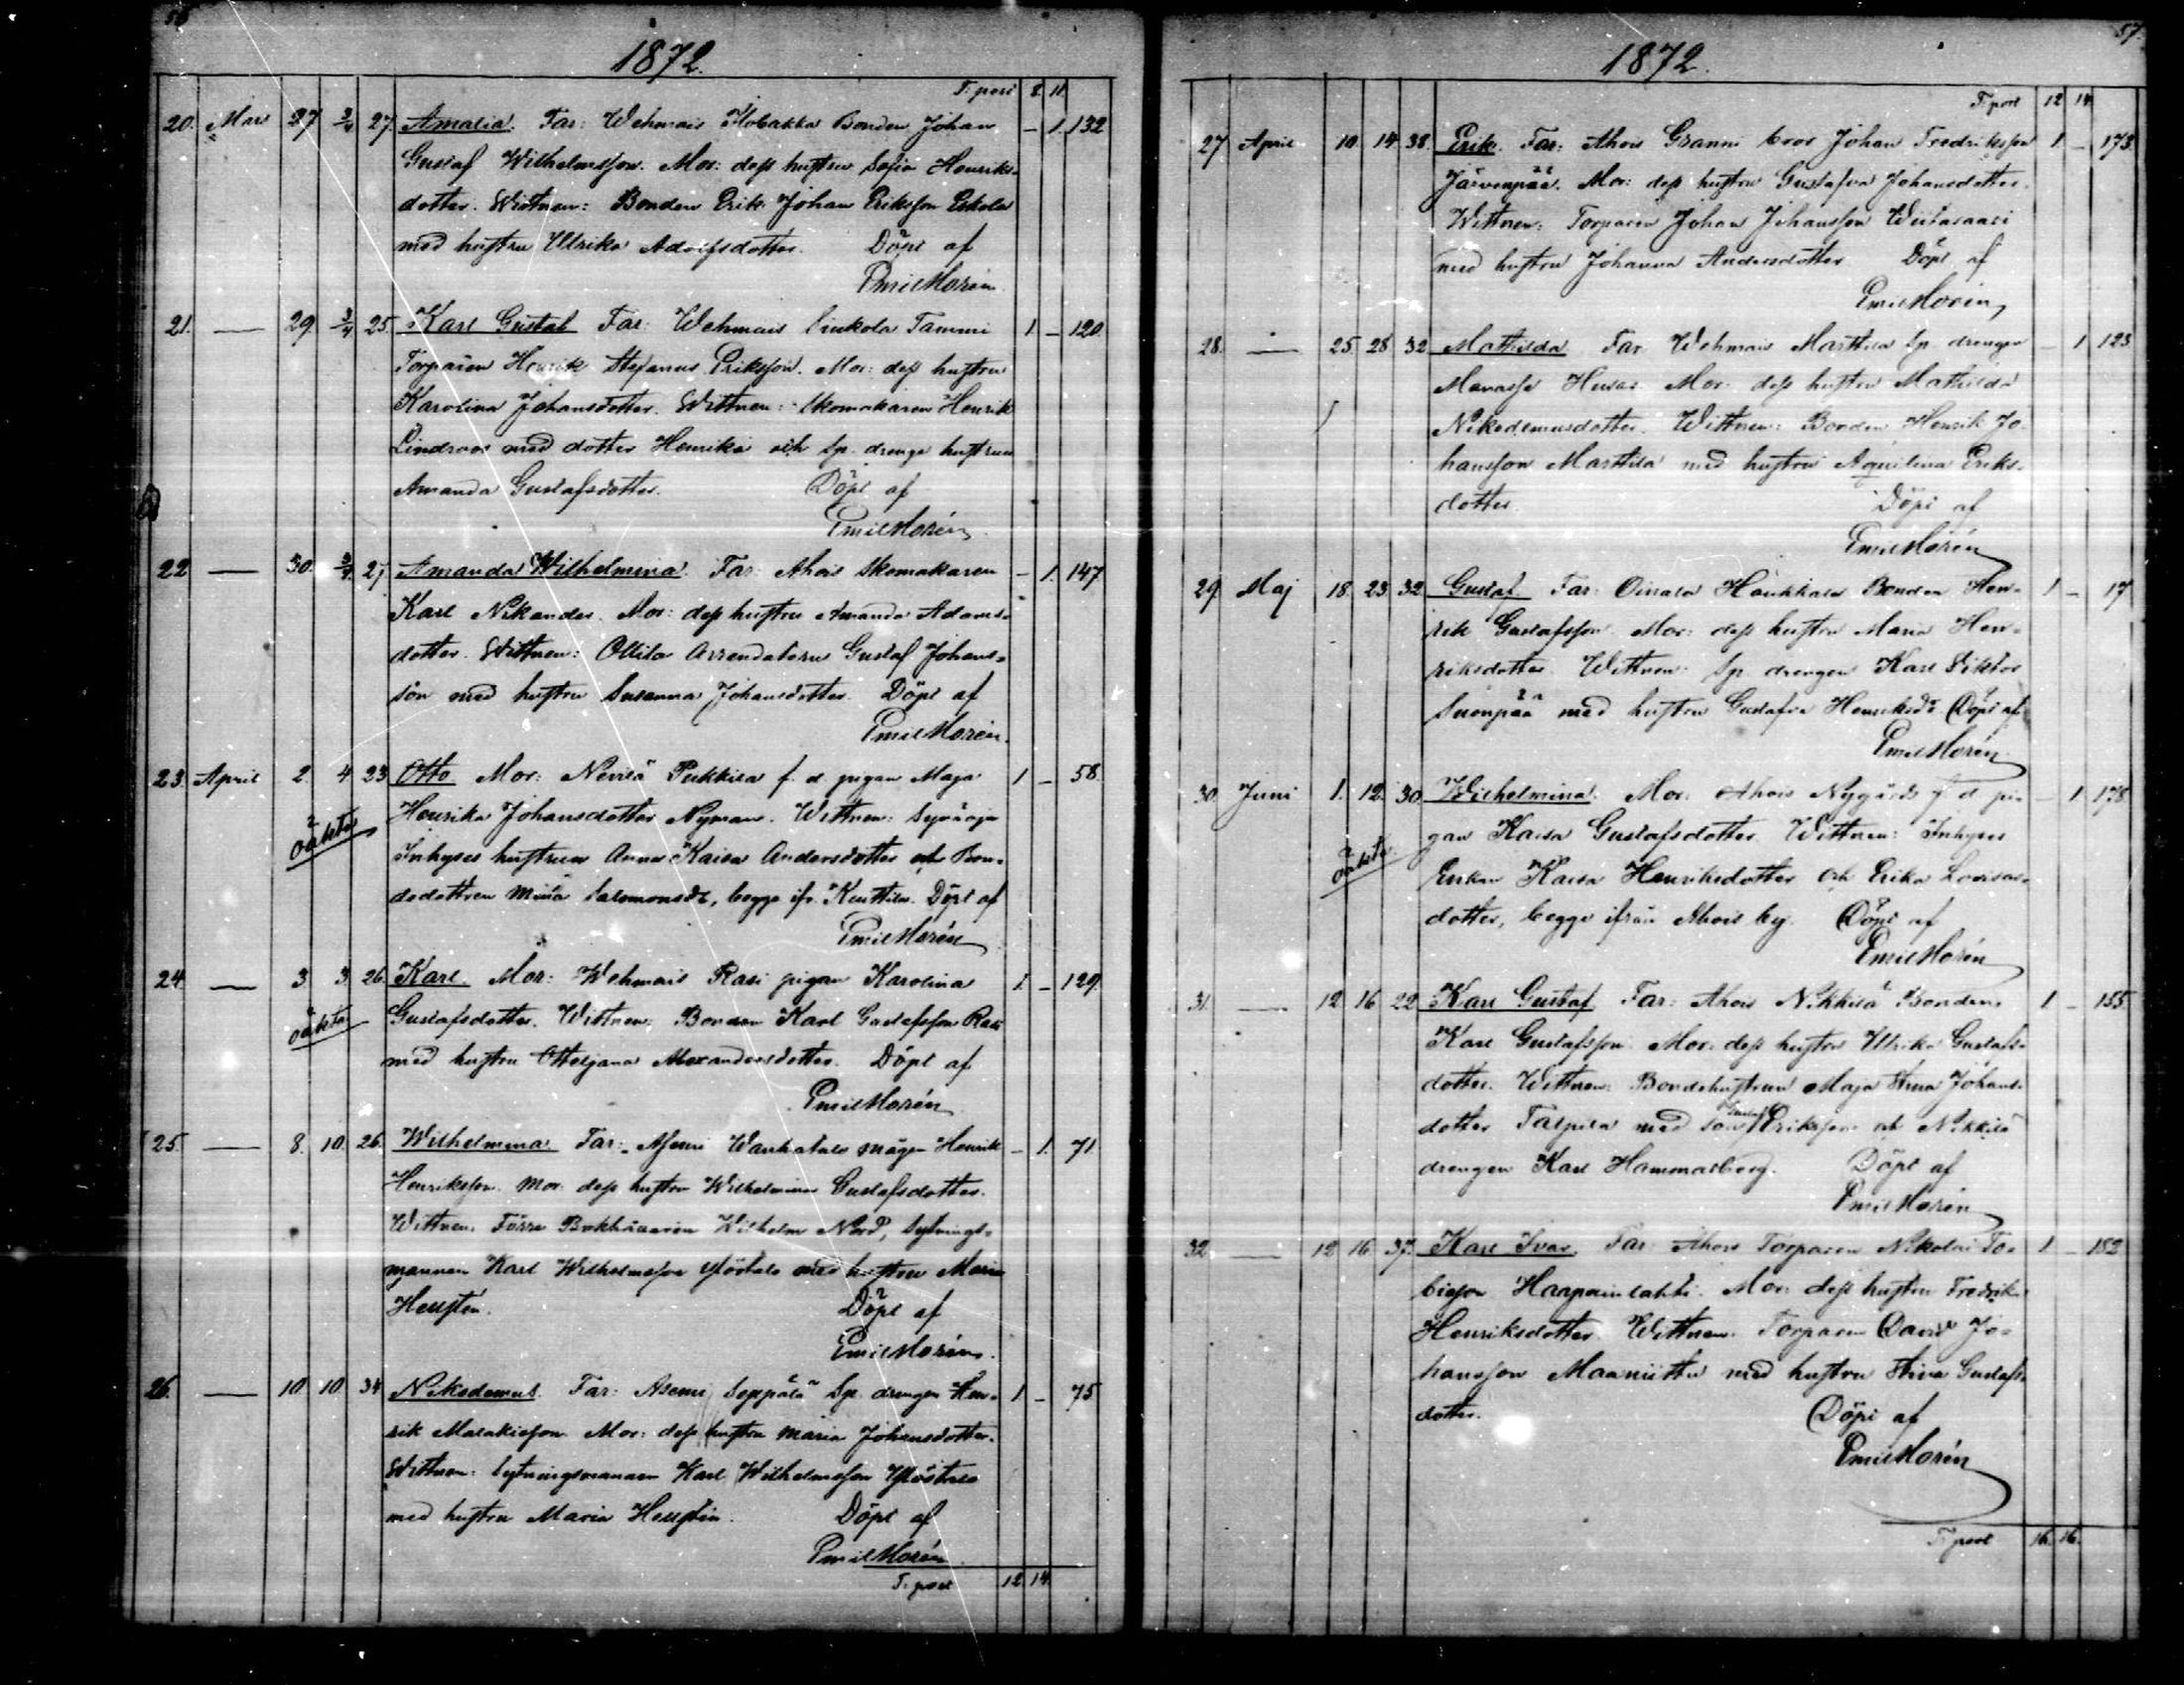 56
1872.
T. post 8 11
20. Mars 27 3/4 27 Amalia. Far: Wehmais Kobakka Bonden Johan – 1. 132
Gustaf Wilhelmsson. Mor: dess hustru Sofia Henriks-
dotter. Wittnen: Bonden Erik Johan Eriksson Eskola
med hustru Ulrika Adolfsdotter. Döpt af
Emil Morén
21. — 29 3/4 25 Karl Gustaf Far: Wehmais Sinkola Tammi 1 – 120
Torparen Henrik Stefanus Eriksson. Mor: dess hustru
Karolina Johansdotter. Wittnen: Skomakaren Henrik
Lindroos med dotter Henrika och Sp. drengs hustrun
Amanda Gustafsdotter. Döpt af
Emil Morén
22 — 30. 3/4 27 Amanda Wilhelmina. Far: Ahois Skomakaren – 1. 147
Karl Nikander. Mor: dess hustru Amanda Adams-
dotter. Wittnen: Ollila Arrendatorn Gustaf Johans-
son med hustru Susanna Johansdotter. Döpt af
Emil Morén.
23. April 2. 4 23 Otto Mor: Nevilä Pukkila f. d. pigan Maja 1 – 58.
oäkta Henrika Johansdotter Nyman. Wittnen: Syvänoja
Inhyses hustrun Anna Kaisa Andersdotter och Bon-
dedottren Mina Salomonsdr, begge ifr. Kenttilä. Döpt af
Emil Morén
24 — 3 3 26. Karl. Mor: Wehmais Rasi pigan Karolina 1 – 129
oäkta Gustafsdotter. Wittnen: Bonden Karl Gustafsson Rasi
med hustru Ottiljana Alexandersdotter. Döpt af
Emil Morén
25. — 8. 10. 26. Wilhelmina Far: Asemi Wanhatalo mågen Henrik – 1. 71.
Henriksson. Mor: dess hustru Wilhelmina Gustafsdotter.
Wittnen: Förre Bokhållaren Wilhelm Nord, Sytnings-
mannen Karl Wilhelmsson Ylöstalo med hustru Maria
Hellstén. Döpt af
Emil Morén.
26. — 10 10 34 Nikodemus. Far: Asemi Seppälä Sp. drengen Hen- 1 – 75
rik Malakiesson. Mor: dess hustru Maria Johansdotter.
Wittnen: Sytningsmannen Karl Wilhelmsson Ylöstalo
med hustru Maria Hellstén. Döpt af
Emil Morén
T. post 12 14
57.
1872.
T. post 12 14
27 April 10. 14 38. Erik. Far: Ahois Granni bror Johan Fredriksson 1 – 173.
Järvenpää. Mor: dess hustru Gustafva Johansdotter.
Wittnen: Torparen Johan Johansson Wiitasaari
med hustru Johanna Andersdotter Döpt af
Emil Morén
28. — 25. 28 32 Mathilda Far Wehmais Marttila Sp. drengen – 1 123
Manasse Husar. Mor: dess hustru Mathilda
Nikodemusdotter. Wittnen: Bonden Henrik Jo-
hansson Marttila med hustru Aquilina Eriks-
dotter. Döpt af
Emil Morén
29. Maj 18. 23 32 Gustaf Far: Oinala Haukkala Bonden Hen- 1 – 17
rik Gustafsson. Mor: dess hustru Maria Hen-
riksdotter Wittnen: Sp. drengen Karl Viktor
Suonpää med hustru Gustafva Henriksdr Döpt af
Emil Morén
30. Juni 1. 12. 30 Wilhelmina. Mor: Ahois Nygårds f. d. pi- – 1 178
oäkta gan Kaisa Gustafsdotter Wittnen: Inhyses
Enkan Kaisa Henriksdotter och Erika Lovisas-
dotter, begge ifrån Ahois by. Döpt af
Emil Morén
31. — 12 16 22 Karl Gustaf Far: Ahois Nikkilä Bonden 1 – 155.
Karl Gustafsson. Mor: dess hustru Ulrika Gustafs-
dotter. Wittnen: Bondehustrun Maja Stina Johans-
dotter Talpila med son Eriksson och Nikkilä
drengen Karl Hammarberg. Döpt af
Emil Morén
32 — 12 16 37. Karl Ivar. Far: Ahois Torparen Nikolai To- 1 – 182
biesson Haapainlahti. Mor: dess hustru Fredrika
Henriksdotter. Wittnen: Torparen David Jo-
hansson Maaniittu med hustru Stina Gustafs-
dotter. Döpt af
Emil Morén
T. post 16. 16.